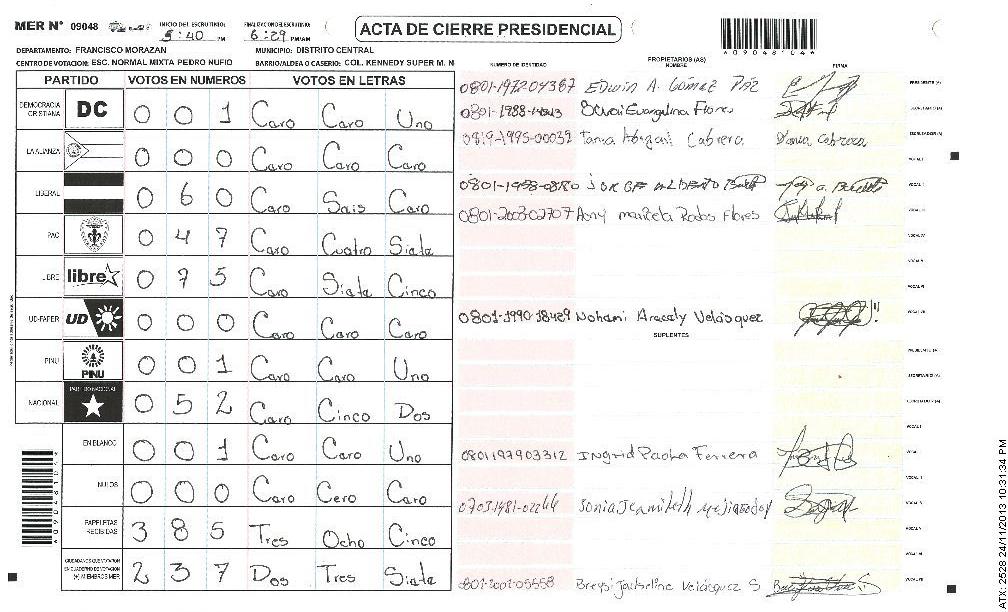 MER N° 09048 INICIO DEL ESCRUTINIO: 5:40 PM FINALIZACION ESCRUTINIO: 6:29 PM/AM ACTA DE CIERRE PRESIDENCIAL
A09048104A
DEPARTAMENTO: FRANCISCO MORAZAN MUNICIPIO: DISTRITO CENTRAL
CENTRO DE VOTACION: ESC. NORMAL MIXTA PEDRO NUFIO BARRIO/ALDEA O CASERIO: COL. KENNEDY SUPER M. N
PARTIDO VOTOS EN NUMEROS VOTOS EN LETRAS
DEMOCRACIA CRISTIANA DC 0 0 1 Caro Caro Uno
LA ALIANZA 0 0 0 Caro Caro Caro
LIBERAL 0 6 0 Caro Sais Caro
PAC 0 4 7 Caro Cuatro Siata
LIBRE libre 0 7 5 Caro Siata Cinco
UD-FAPER UD 0 0 0 Caro Caro Caro
PINU PINU 0 0 1 Caro Caro Uno
NACIONAL PARTIDO NACIONAL 0 5 2 Caro Cinco Dos
EN BLANCO 0 0 1 Caro Caro Uno
NULOS 0 0 0 Caro Cero Caro
PAPELETAS RECIBIDAS 3 8 5 Tres Ocho Cinco
CIUDADANOS QUE VOTARON EN CUADERNO DE VOTACION (+) MIEMBROS MER 2 3 7 Dos Tres Siata
PROPIETARIOS (AS)
NUMERO DE IDENTIDAD NOMBRE FIRMA
Edwin A. Gómez Paz PRESIDENTE (A)
Evangelina Flores SECRETARIO (A)
0819-1995-00032 Tania Cabrera Tania Cabrera ESCRUTADOR (A)
VOCAL I
JORGE ALBERTO VOCAL II
0801-200302707 Flores VOCAL III
VOCAL IV
VOCAL V
VOCAL VI
0801-1990-18429 Nohami Aracely Velasquez VOCAL VII
SUPLENTES
PRESIDENTE (A)
SECRETARIO (A)
ESCRUTADOR (A)
VOCAL I
0801197903312 Ingrid Paola Ferrera VOCAL
VOCAL II
Sonia
VOCAL V
VOCAL VI
0801-2001-05558 Velásquez S VOCAL VII
ATX: 2528 24/11/2013 10:31:34 PM